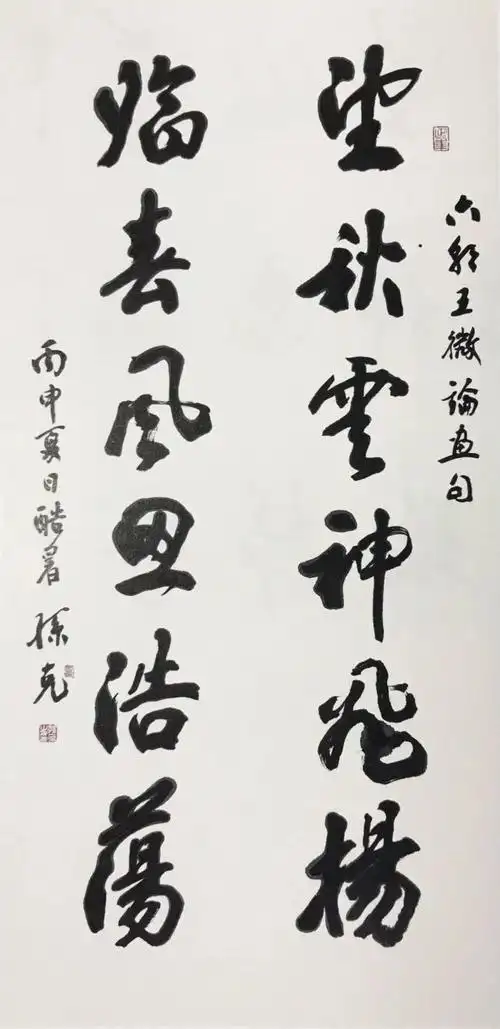 六朝王微論画句
望秋雲神飛揚
臨春風思浩蕩
丙申夏日酷暑 孫克